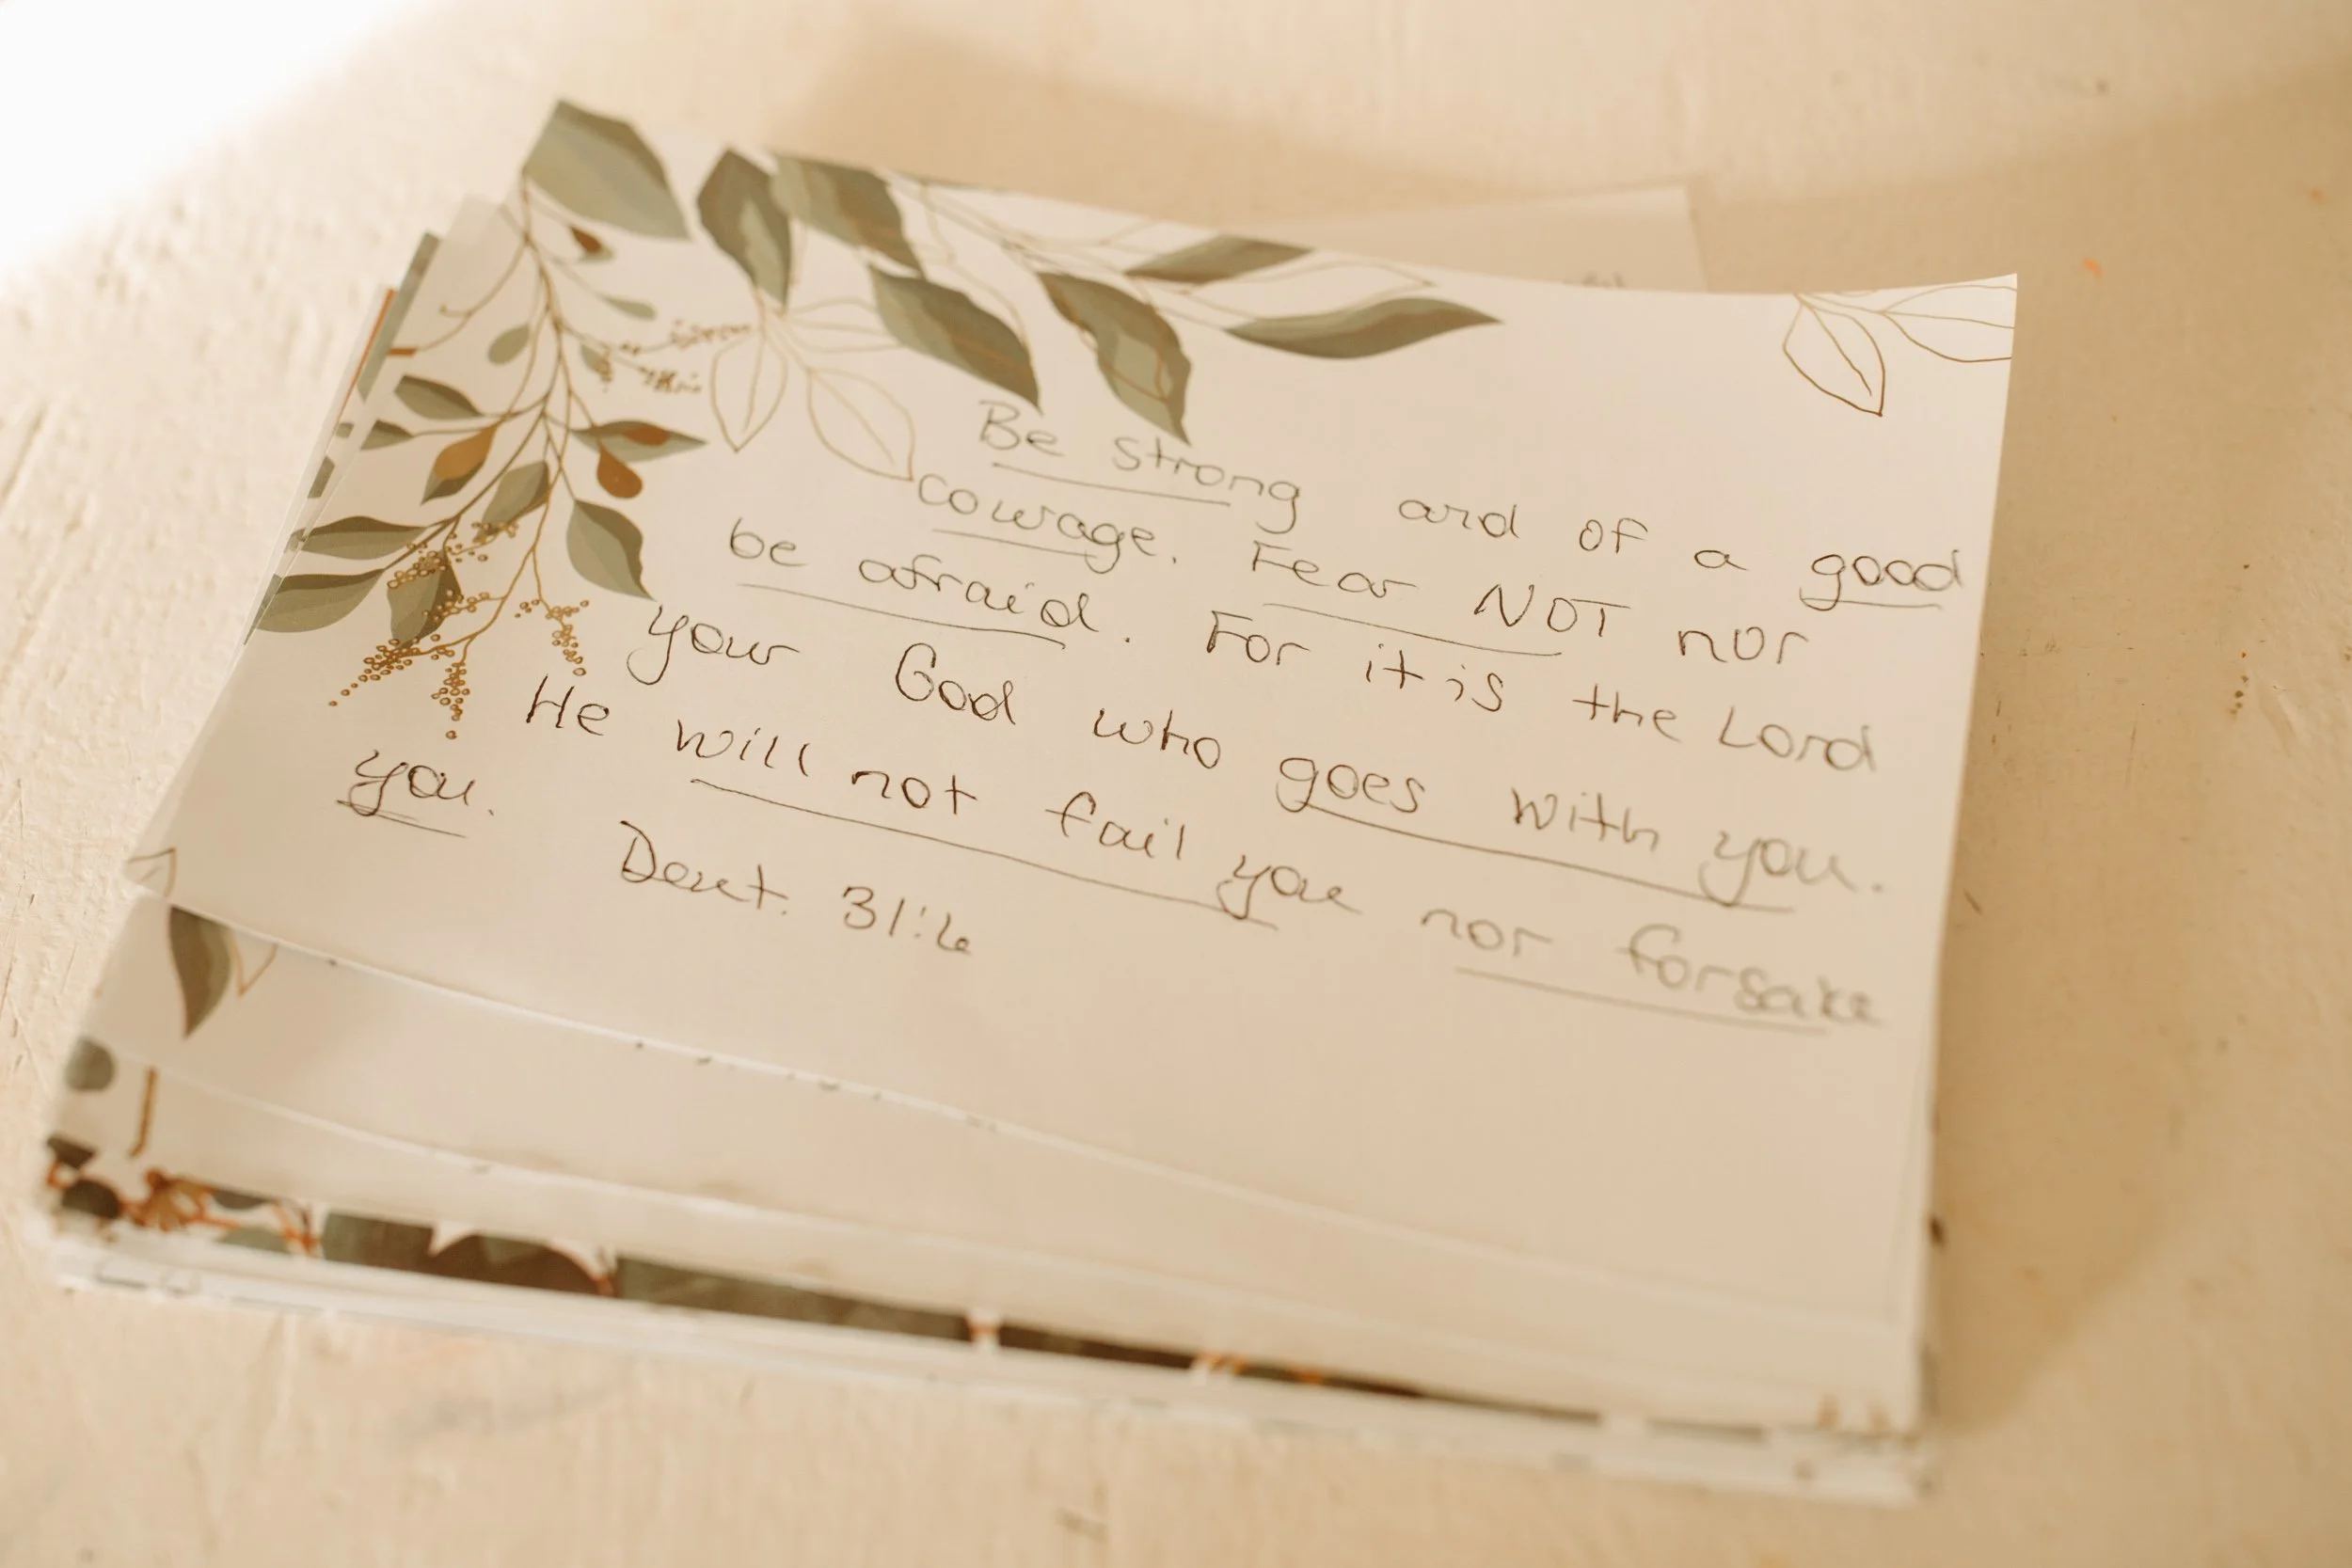 Be strong and of a good
courage. Fear NOT nor
be afraid. For it is the Lord
your God who goes with you.
He will not fail you nor forsake
you. Deut. 31:6